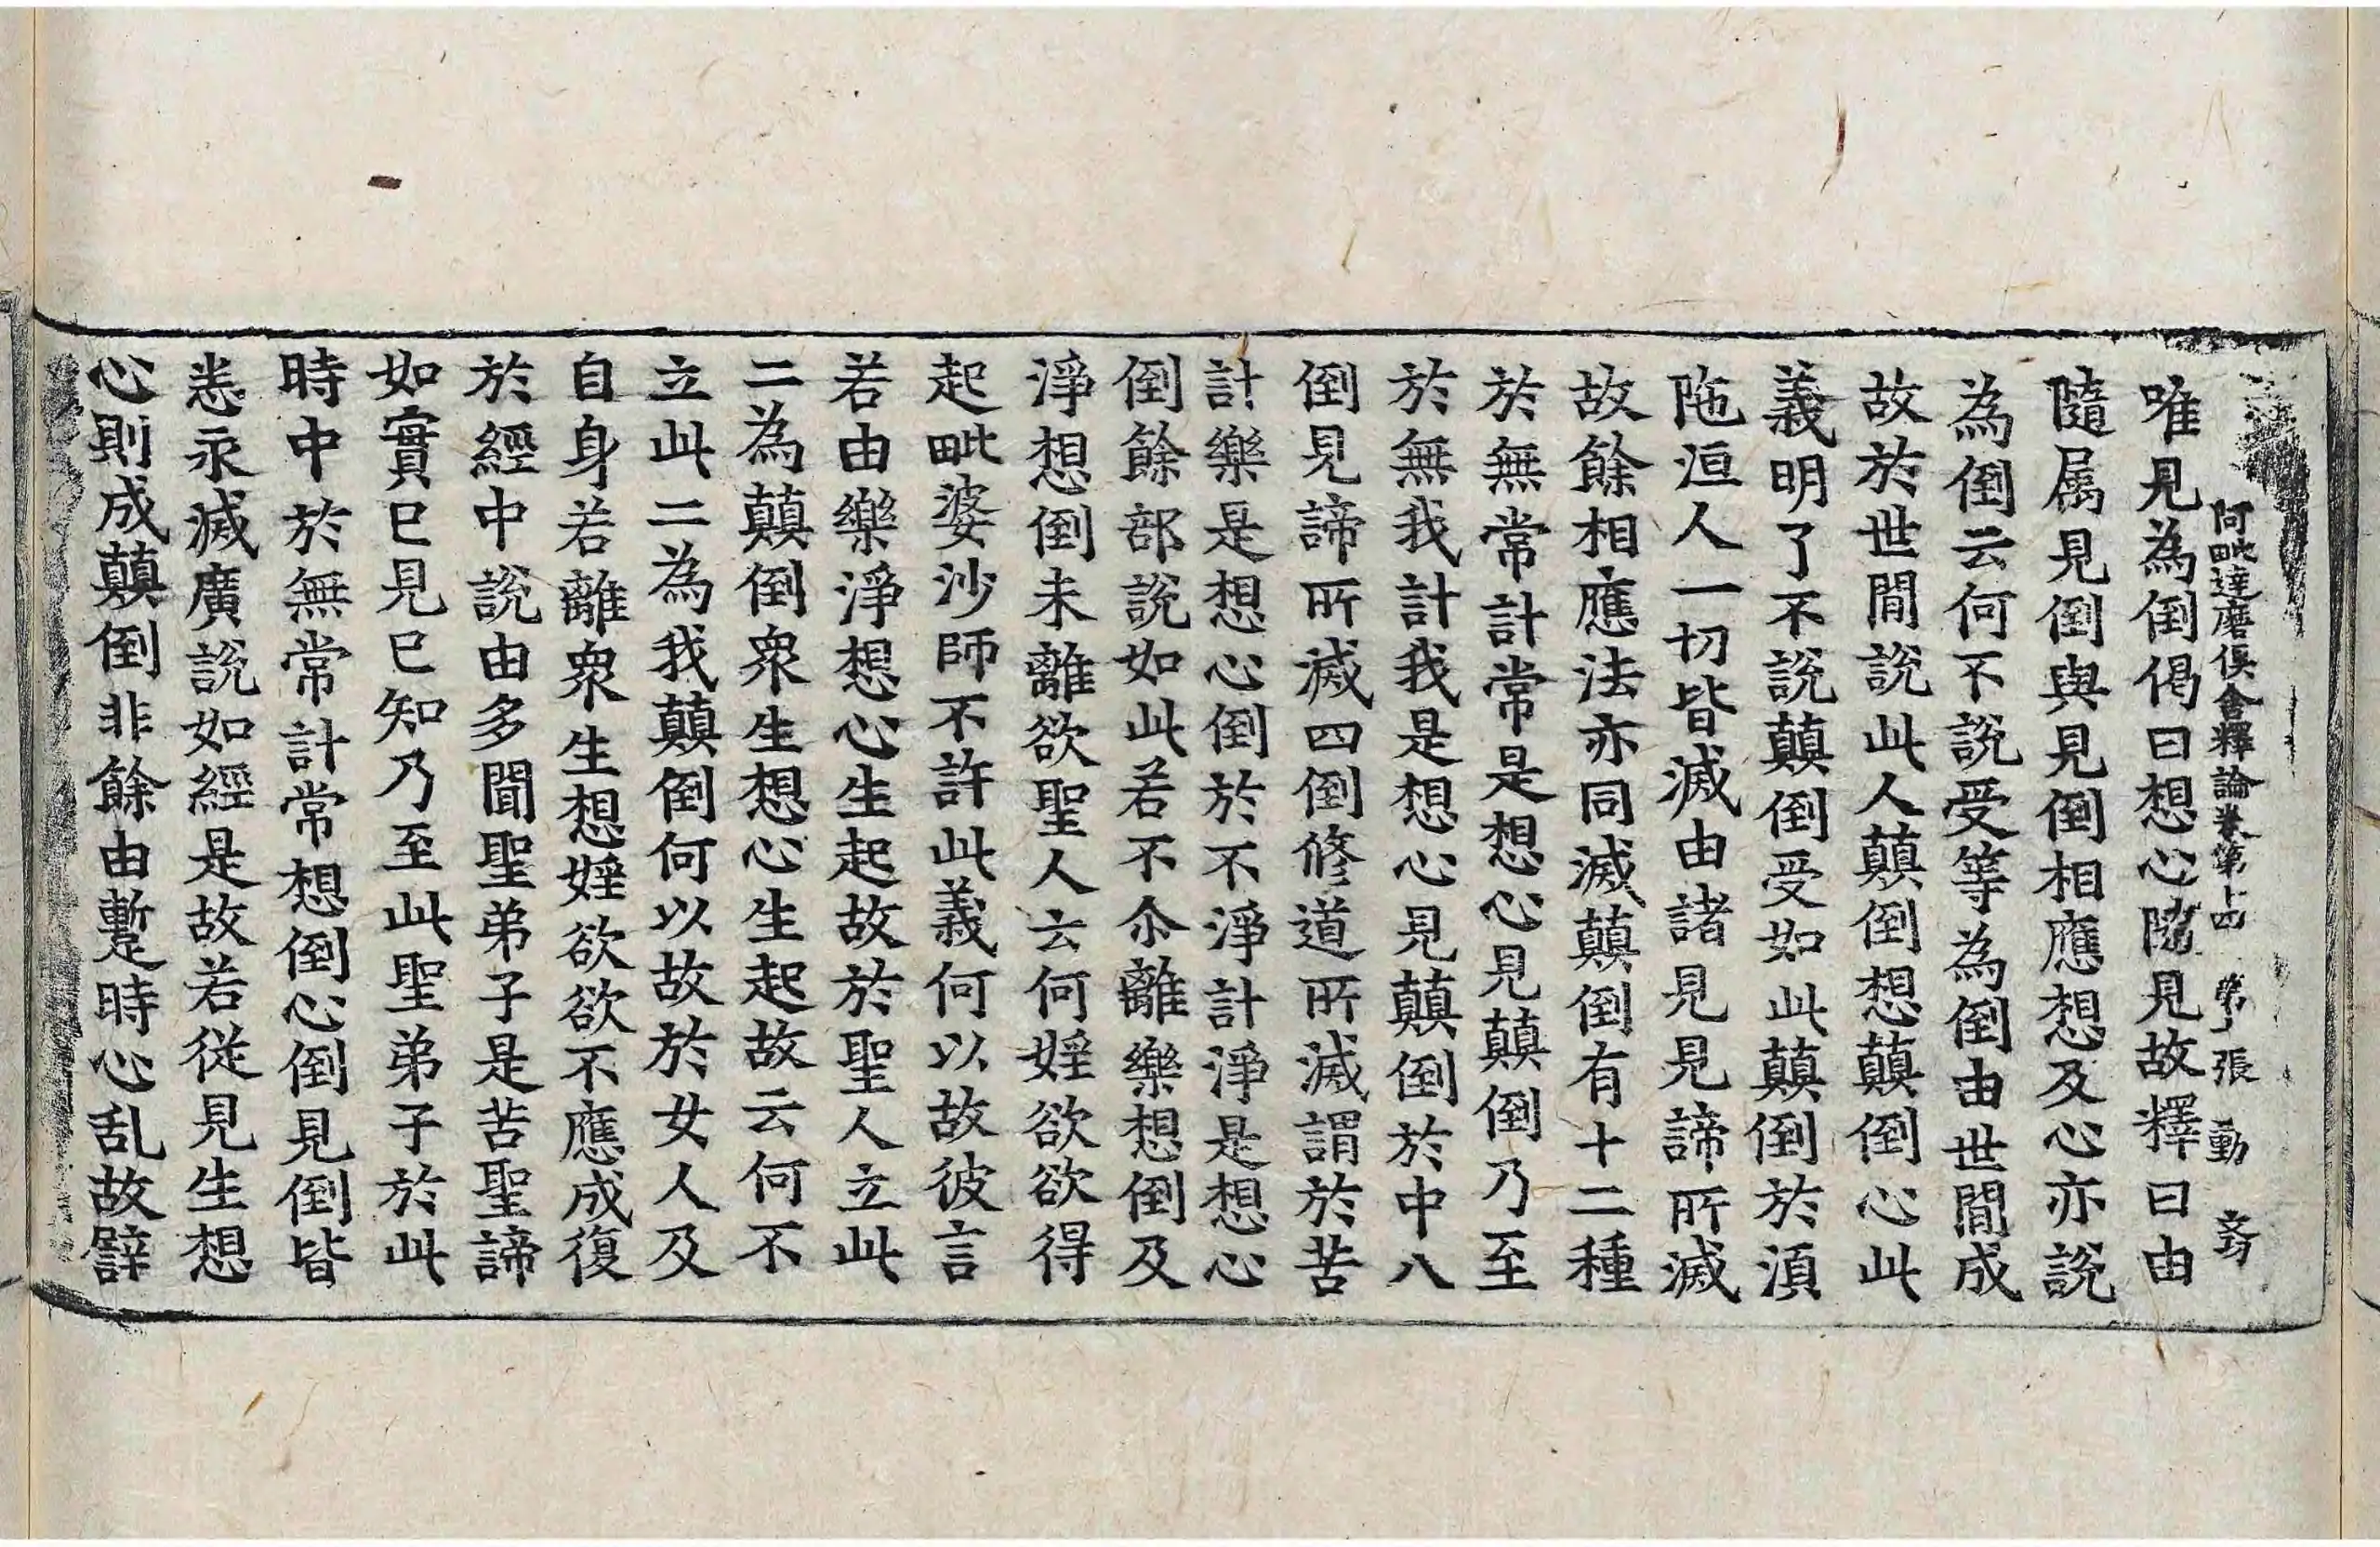 阿毗達磨俱舍釋論卷第十四 第 張 動
唯見為倒偈曰想心隨見故釋曰由
隨属見倒與見倒相應想及心亦說
為倒云何不說受等為倒由世間成
故於世間說此人顛倒想顛倒心此
義明了不說顛倒受如此顛倒於湏
陁洹人一切皆滅由諸見見諦所滅
故餘相應法亦同滅顛倒有十二種
於無常計常是想心見顛倒乃至
於無我計我是想心見顛倒於中八
倒見諦所滅四倒修道所滅謂於苦
計樂是想心倒於不淨計淨是想心
倒餘部說如此若不尒離樂想倒及
淨想倒未離欲聖人云何婬欲欲得
起毗婆沙師不許此義何以故彼言
若由樂淨想心生起故於聖人立此
二為顛倒衆生想心生起故云何不
立此二為我顛倒何以故於女人及
自身若離衆生想婬欲欲不應成復
於經中說由多聞聖弟子是苦聖諦
如實已見已知乃至此聖弟子於此
時中於無常計常想倒心倒見倒皆
悉永滅廣說如經是故若從見生想
心則成顛倒非餘由蹔時心乱故譬